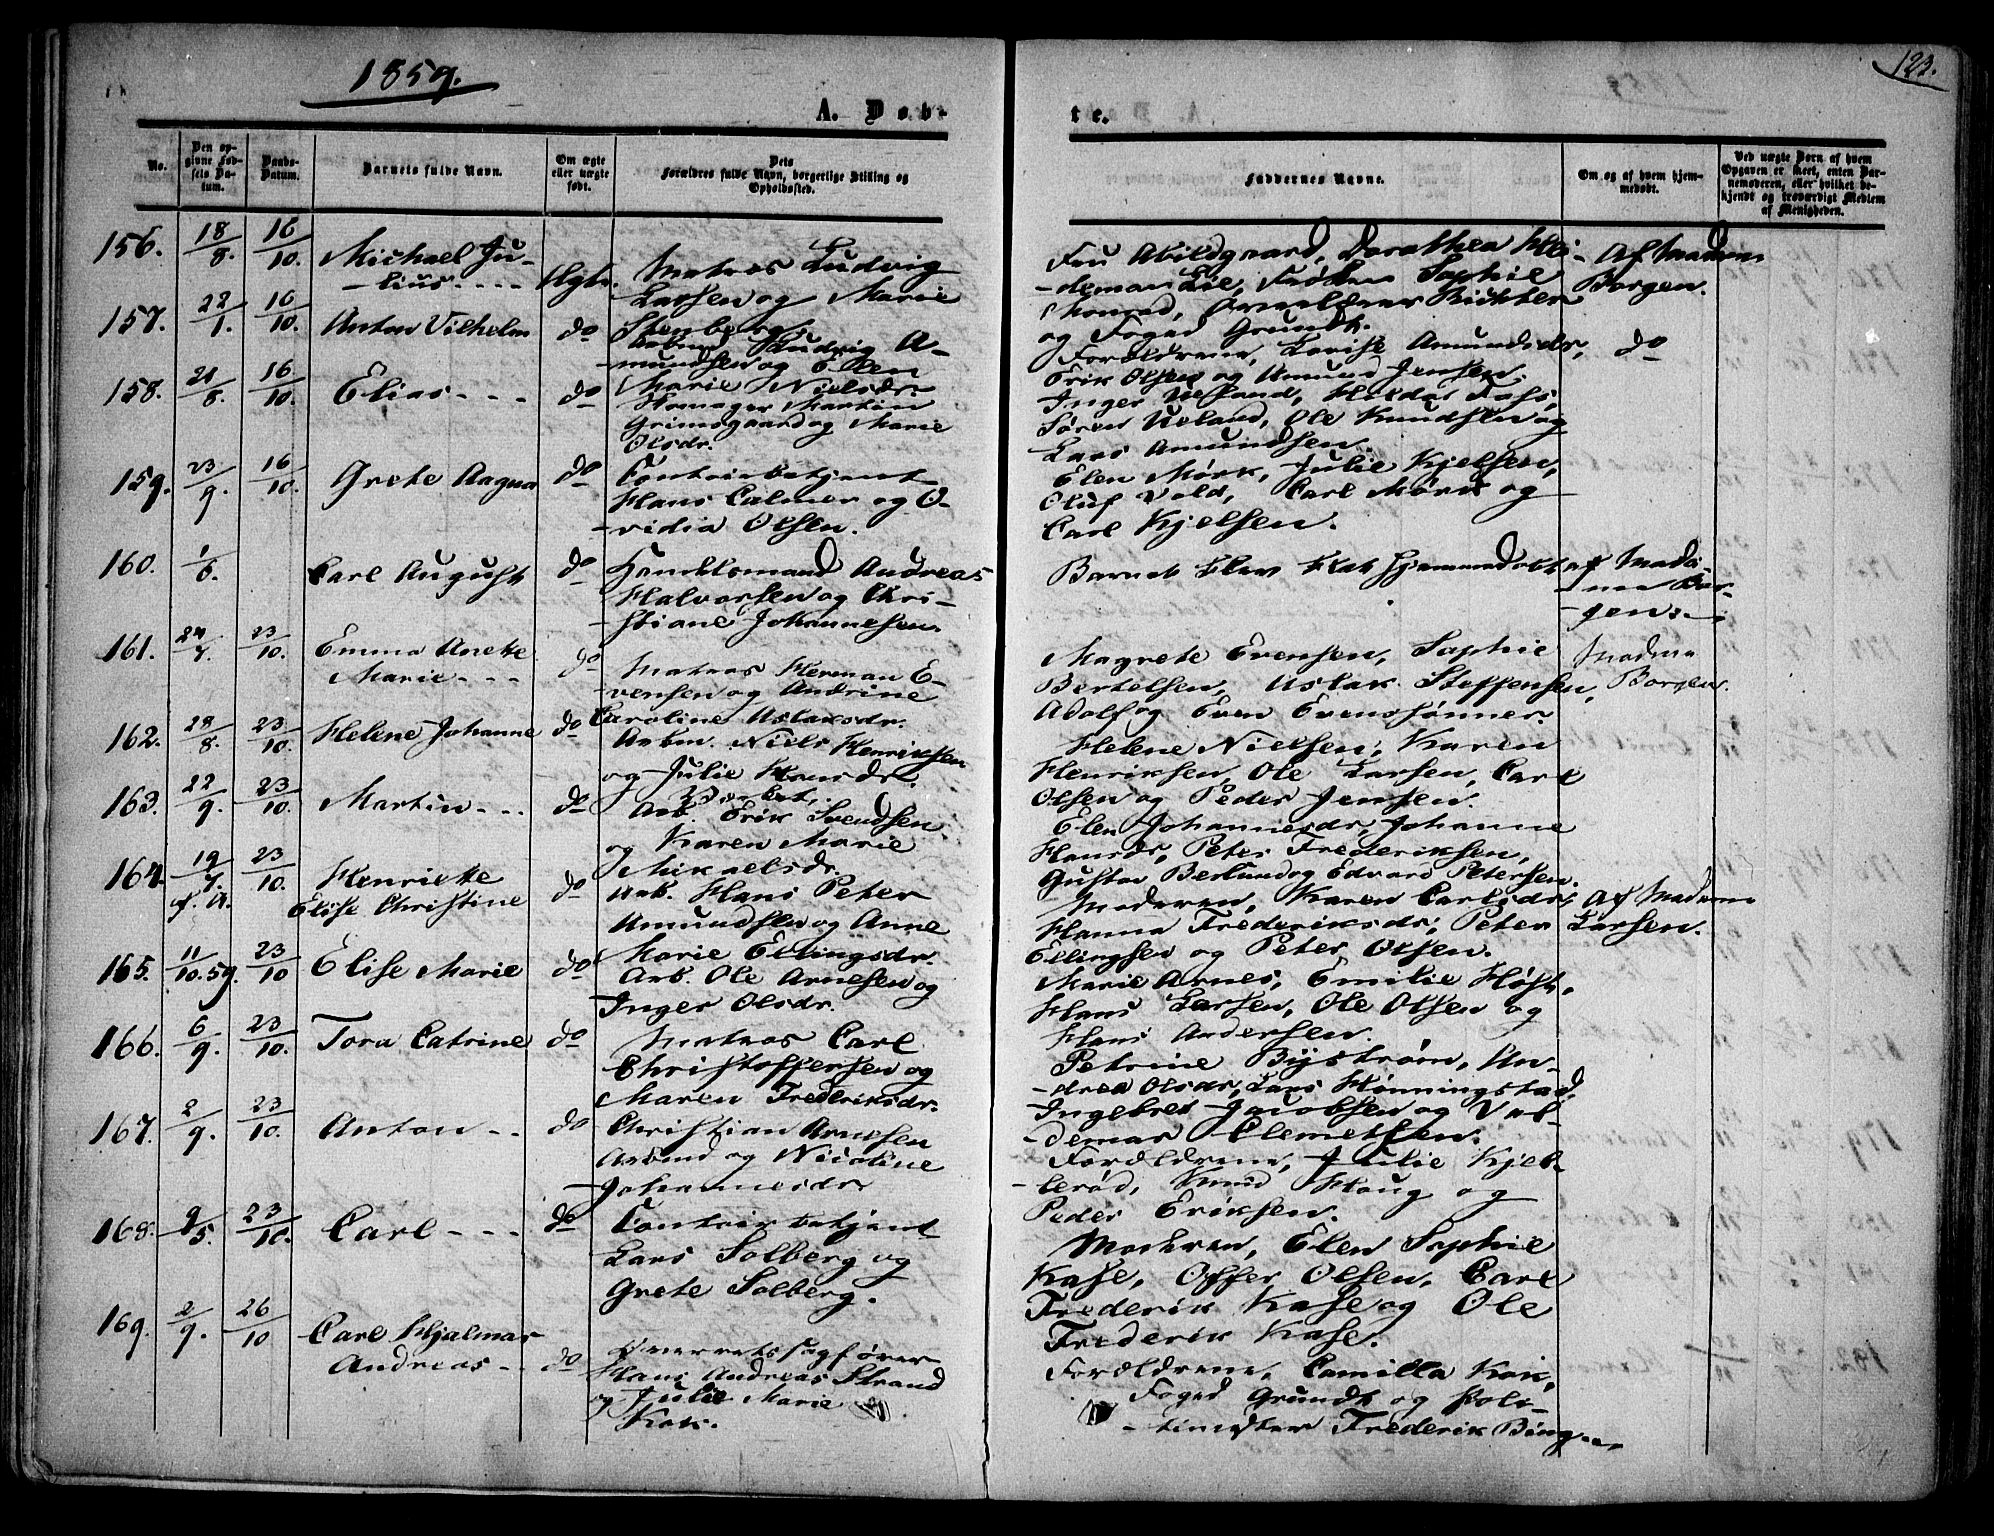 1859.
123.
A. Døb-
te.
No.
Den op-
givne Fød-
sels Da-
tum.
Daabs-
Datum.
Barnets fulde Navn.
Om ægte
eller uægte
født.
Dets
Forældres fulde Navn, borgerlige Stilling og
Opholdssted.
Faddernes Navne.
Om og af hvem hjem-
medøbt.
Ved uægte Børn af hvem
Opgaven er skeet, enten Bar-
nemoderen, eller hvilket be-
kjendt og troværdigt Medlem
af Menigheden.
156. 18/8. 16/10. Michael Ju-
-lius ---- Ægte.
Matros Ludvig
Larsen og Marie
Stenberg.
Fru Abildgaard, Dorothea
-deman Lie, Frøken Sophie
Konrad, Richter
og Foged Grundt.
Af Madme
Borgen.
157. 22/1. 16/10. Anton Vilhelm do
Arbmd Ludvig A-
mundsen og Elen
Marie Nielsdr.
Forældrene, Lovise Amundsdr,
Erik Olsen og Amund Jensen.
do
158. 21/8. 16/10. Elias --- do
Martin
Grimsgaard og Marie
Olsdr.
Inger Ueland,
Søren Ueland, Ole Knudsen og
Lars Amundsen.
159. 23/9. 16/10. Grete Aagna do
Contoirbetjent
Hans Calmer og O-
-vidia Olsen.
Elen Mørk, Julie Kjelsen,
Oluf Vold, Carl Mørk og
Carl Kjelsen.
160. 1/6. Carl August do
Handelsmand Andreas
Halvorsen og Chri-
-stiane Johannesen.
Barnet blev kat hjemmedøbt af Mada-
-me Bor-
-gen.
161. 24/7. 23/10. Emma Anette
Marie --- do
Matros Herman E-
-vensen og Andrine
Caroline Aslaksdr.
Magrete Evensen, Sophie
Bertelsen, Aslak Steffensen,
Adolf og Even Evenssønner.
Madme
Borgen.
162. 28/8. 23/10. Helene Johanne do
Arbm. Niels Henriksen
og Julie Hansdr.
Helene Nielsen, Karen
Henriksen, Ole Larsen, Carl
Olsen og Peder Jensen.
163. 22/9. 23/10. Martin --- do
Arb. Erik Svendsen
og Karen Marie
Mikaelsdr.
Elen Johannesdr, Johanne
Hansdr, Peter Frederiksen,
Gustav Berlund og Edvard Petersen.
164. 19/7. 23/10. Henriette
f. A. Elise Christine do
Arb. Hans Peter
Amundsen og Anne
Marie Ellingsdr.
Moderen, Karen Carlsdr,
Hanna Frederiksdr, Peter
Ellingsen og Peter Olsen.
Af Madme
Larsen.
165. 11/10.59. 23/10 Elise Marie do
Arb. Ole Arnesen og
Inger Olsdr.
Marie Arnes, Emilie Høst,
Hans Larsen, Ole Olsen og
Hans Andersen.
166. 6/9. 23/10. Tora Catrine do
Matros Carl
Christoffersen og
Maren Frederiksdr.
Petrine Bystrøm, An-
-drea Olsdr, Lars Hønningstad,
Ingebret Jacobsen og Val-
-demar Clemetsen.
167. 2/9. 23/10. Anton -- do
Christian Arnesen
Arbmd og Nicoline
Johannesdr.
Forældrene, Julie Kjel-
-lerød, Knud Haug og
Peder Eriksen.
168. 9/5. 23/10. Carl --- do
Contoirbetjent
Lars Solberg og
Grete Solberg.
Moderen, Elen Sophie
Kase, Offer Olsen, Carl
Frederik Kase og Ole
Frederik Kase.
169. 2/9. 26/10 Carl Hjalmar
Andreas -- do
Overretssagfører
Hans Andreas Strand
og Julie Marie
Kok.
Forældrene, Camilla Kok,
Foged Grundt og Poli-
-timester Frederik